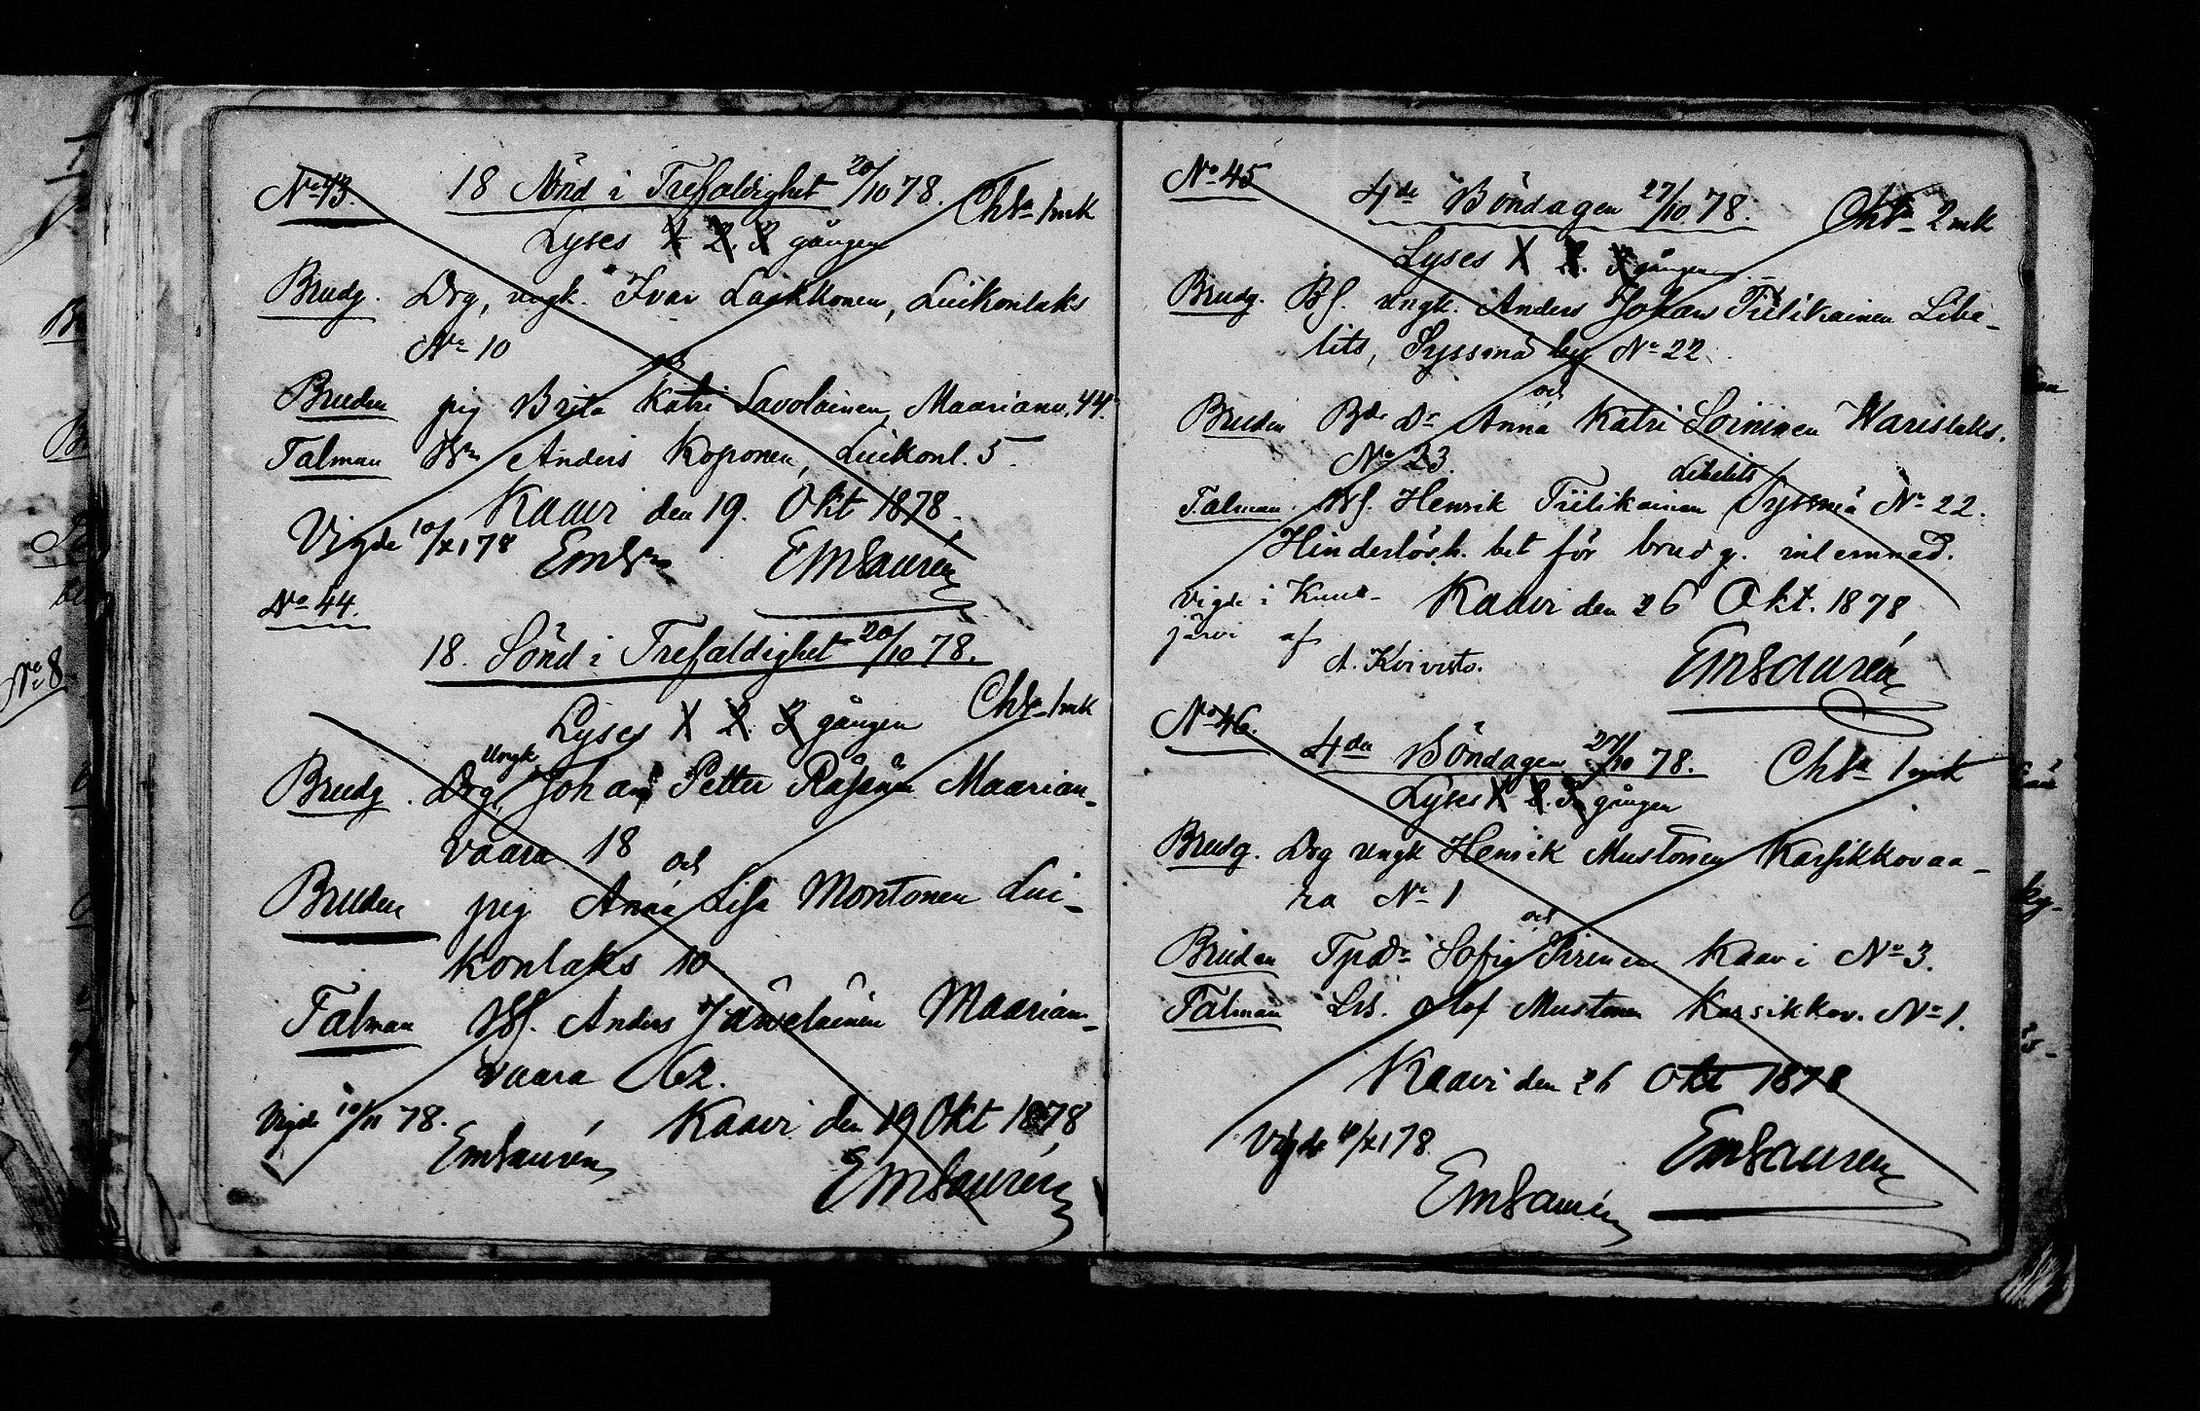 No 43. 18 Sönd i Trefaldighet 20/10 78. Chsa 1mk
Lyses 1 2. 3 gången
Brudg. Drg, ungk. Ivar Laakkonen, Luikonlaks
No 10
och
Bruden pig Brita Katri Savolainen, Maarianv. 44.
Talman Anders Koponen, Luikonl. 5.
Kaavi den 19. Okt 1878.
Vigde 10/XI 78 EmSn EMSaurén
No 44.
18. Sönd i Trefaldighet 20/10 78.
Lyses 1 2. 3 gången Chsa 1mk
Ungk
Brudg. Drg, Johan Petter Räsänen Maarian-
vaara 18 och
Bruden pig Anna Lisa Montonen Lui-
konlaks 10
Talman Anders Jäweläinen Maarian-
vaara 62.
Vigde 10/11 78. Kaavi den 19 Okt 1878
EmSaurén EMSaurén
No 45 4de Böndagen 27/10 78. Chsa 2mk
Lyses 1 2. 3 gången
Brudg. Bf. ungk. Anders Johan Tiilikainen Libe-
lits, Syssmä by No 22.
och
Bruden Bde Dr Anna Katri Soininen Warislaks.
No 23.
Libelits
Talman. Bf. Henrik Tiilikainen Syssmä No 22.
Hinderlösh. bet för brudg. inlemnad.
Vigde i Kuus- Kaavi den 26 Okt. 1878
järvi af
A. Koivisto. EmSaurén
No 46.
4de Böndagen 27/10 78. Chsa 1mk
Lyses 1 2. 3 gången
Brudg. Drg ungk Henrik Mustonen Karsikkovaa-
ra No 1
och
Bruden Tpdr Sofia Pirinen Kaavi No 3.
Talman Lrs. Olof Mustonen Karsikkov. No 1.
Kaavi den 26 Okt 1878
Vigde 10/XI 78. EmSaurén
EmSaurén
No 8.